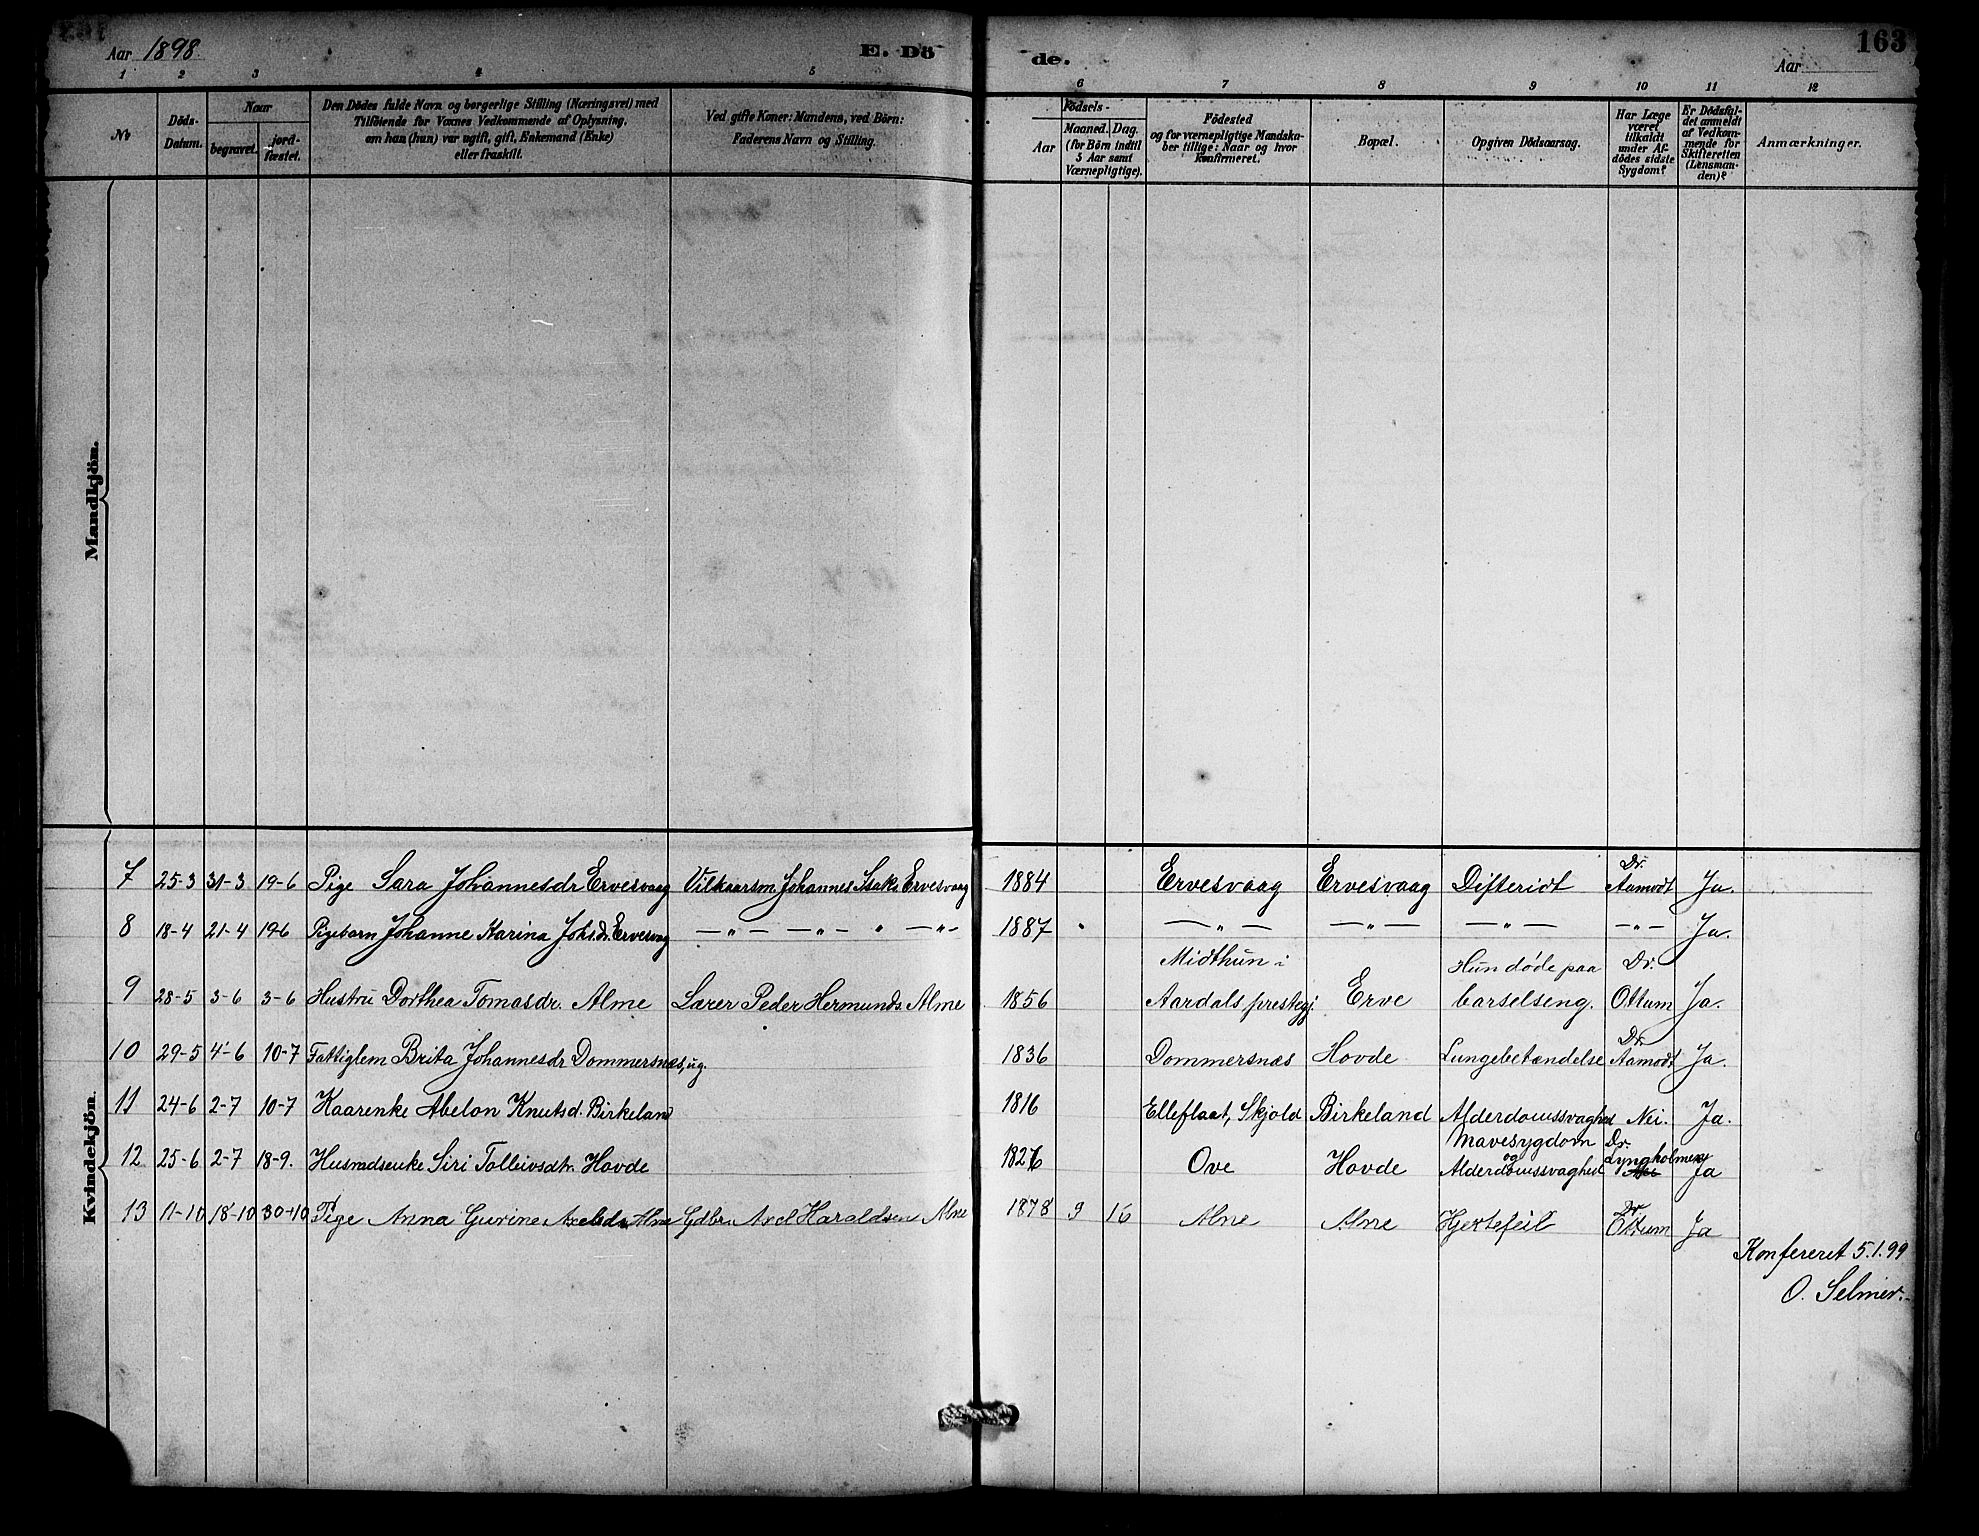 Aar 1898.
E. Dö
de.
163
Aar
1 2 3 4 5 6 7 8 9 10 11 12
No
Döds-
Datum.
Naar
begravet.
jord-
fæstet.
Den Dödes fulde Navn og borgerlige Stilling (Næringsvei) med
Tilföiende for Voxnes Vedkommende af Oplysning,
om han (hun) var ugift, gift, Enkemand (Enke)
eller fraskilt.
Ved gifte Koner: Mandens, ved Börn:
Faderens Navn og Stilling.
Födsels-
Aar
Maaned. Dag.
(for Börn indtil
5 Aar samt
Værnepligtige).
Födested
og for værnepligtige Mandska-
ber tillige: Naar og hvor
konfirmeret.
Bopæl.
Opgiven Dödsaarsag.
Har Læge
været
tilkaldt
under Af-
dödes sidste
Sygdom?
Er Dödsfal-
det anmeldt
af Vedkom-
mende for
Skifteretten
(Lensman-
den)?
Anmærkninger.
Mandkjön.
Kvindekjön.
Dr.
7 25-3 31-3 19-6 Pige Sara Johannesdr Ervesvaag Vilkaarsm. Johannes Isaks. Ervesvaag 1884 Ervesvaag Ervesvaag Difteridt Aamodt Ja.
8 18-4 21-4 19-6 Pigebarn Johanne Karina Johsdr. Ervesvag —"— —"— " —"— 1887 —"— —"— —"— -"- Ja.
Midthun i Hun døde paa Dr.
9 28-5 3-6 3-6 Hustru Dorthea Tomasdr. Alme Lærer Peder Hermunds. Alme 1856 Aardals prestegj. Erve barselseng. Ottum Ja.
Dr.
10 29-5 4-6 10-7 Fattiglem Brita Johannesdr Dommersnæs, ug. 1836 Dommersnæs Hovde Lungebetændelse Aamodt Ja.
11 24-6 2-7 10-7 Kaarenke Abelon Knutsd. Birkeland 1816 Elleflaat, Skjold Birkeland Alderdomssvaghed Nei. Ja.
Mavesygdom Dr.
og
12 25-6 2-7 18-9. Husmdsenke Siri Tolleivsdtr. Hovde 1826 Ove Hovde Alderdomssvaghed Lyngholmen Ja
Dr.
13 11-10 18-10 30-10 Pige Anna Gurine Axelsdr. Alne Gdbr. Axel Haraldsen Alne 1878 9 16 Alne Alne Hjertefeil Ottum Ja
Konfereret 5.1.99
O. Selmer.